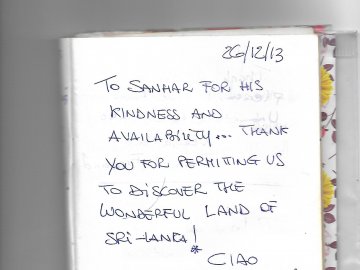 26/12/13
TO SANHAR FOR HIS
KINDNESS AND
AVAILABILITY... THANK
YOU FOR PERMITING US
TO DISCOVER THE
WONDERFUL LAND OF
SRI-LANKA!
* CIAO